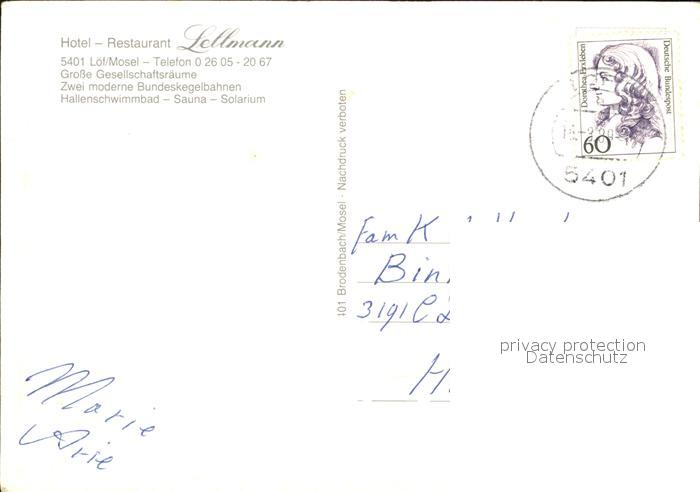 Hotel – Restaurant Lellmann
5401 Löf/Mosel – Telefon 0 26 05 - 20 67
Große Gesellschaftsräume
Zwei moderne Bundeskegelbahnen
Hallenschwimmbad – Sauna – Solarium
401 Brodenbach/Mosel - Nachdruck verboten
Dorothea Erxleben
Deutsche Bundespost
60
5401
Fam K
Bin
3191 C
H.
privacy protection
Datenschutz
Marie
Arie